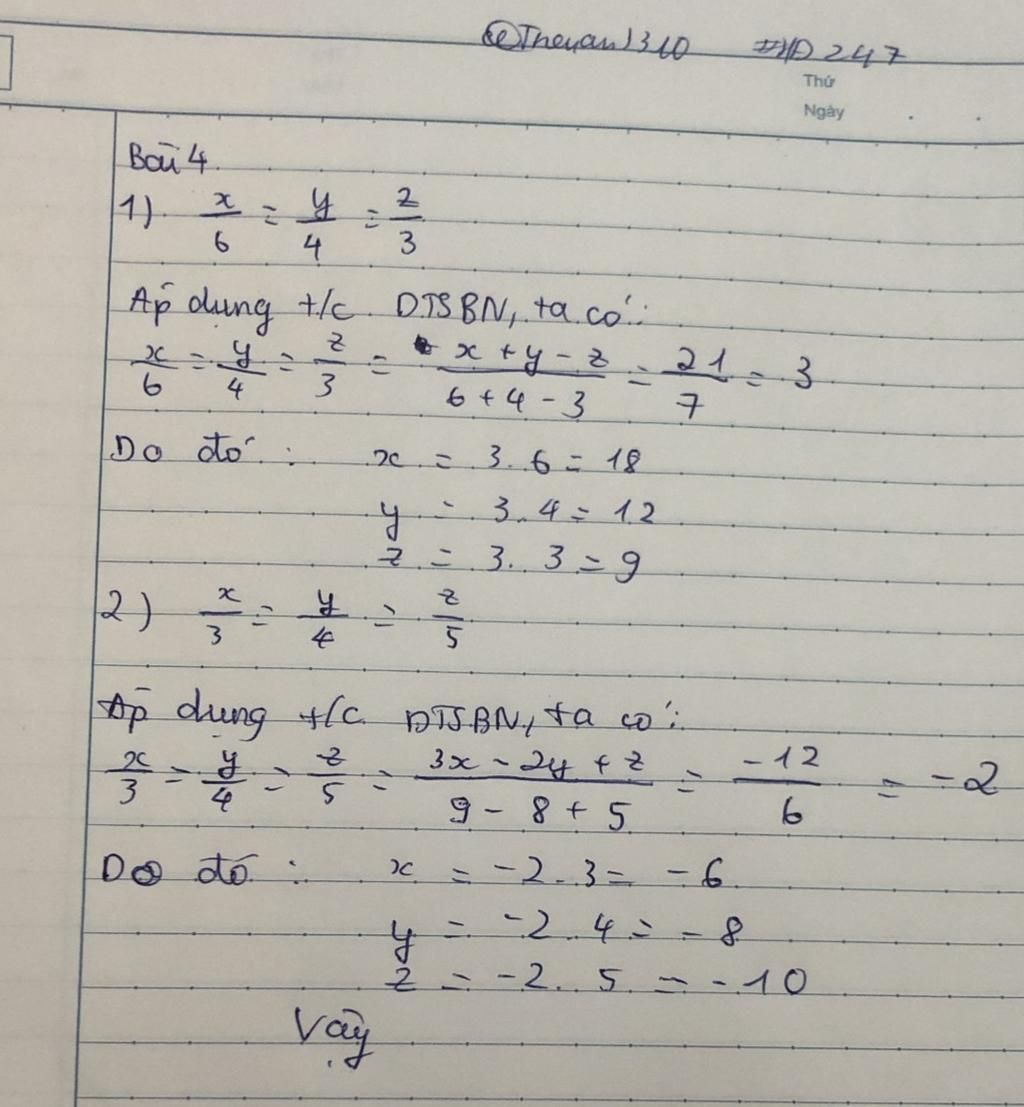 @Theyan1310 #HD247
Thứ
Ngày
Bài 4
1) x/6 = y/4 = z/3
Áp dụng t/c DTSBN, ta có:
x/6 = y/4 = z/3 = x + y - z / 6 + 4 - 3 = 21/7 = 3
Do đó: x = 3.6 = 18
y = 3.4 = 12
z = 3.3 = 9
2) x/3 = y/4 = z/5
Áp dụng t/c DTSBN, ta có:
x/3 = y/4 = z/5 = 3x - 2y + z / 9 - 8 + 5 = -12/6 = -2
Do đó: x = -2.3 = -6
y = -2.4 = -8
z = -2.5 = -10
Vậy